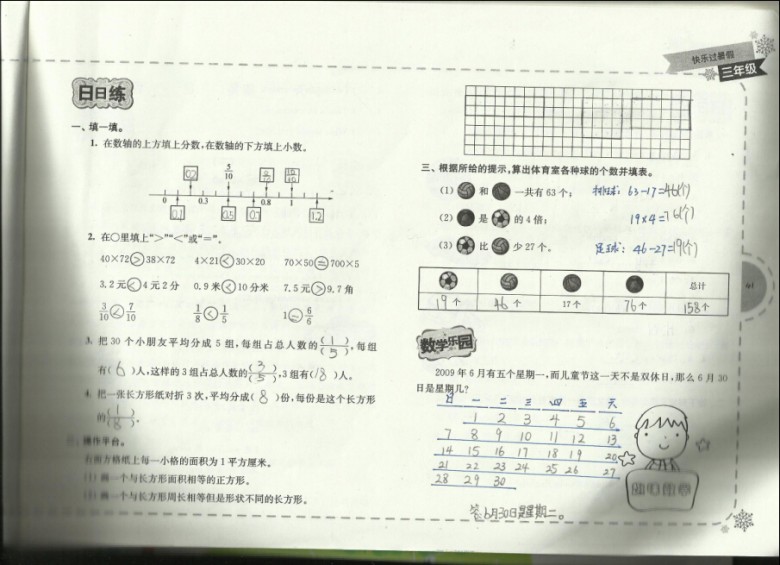 快乐过暑假
三年级
日日练
一、填一填。
1. 在数轴的上方填上分数,在数轴的下方填上小数。
5/10 8/10 10/10
0 0.3 0.8 1
0.1 0.5 0.7 1.2
2. 在○里填上“>”“<”或“=”。
40×72>38×72 4×21<30×20 70×50=700×5
3.2元<4元2分 0.9米<10分米 7.5元>9.7角
3/10<7/10 1/8<1/5 1=6/6
3. 把30个小朋友平均分成5组,每组占总人数的(1)/(5),每组
有(6)人,这样的3组占总人数的(3)/(5),3组有(18)人。
4. 把一张长方形纸对折3次,平均分成(8)份,每份是这个长方形
的(1)/(8)。
操作平台。
右面方格纸上每一小格的面积为1平方厘米。
(1) 画一个与长方形面积相等的正方形。
(2) 画一个与长方形周长相等但是形状不同的长方形。
三、根据所给的提示,算出体育室各种球的个数并填表。
(1) 和 一共有63个; 排球: 63-17=46(个)
(2) 是 的4倍; 19×4=76(个)
(3) 比 少27个。 足球: 46-27=19(个)
总计
19个 46个 17个 76个 158个
数学乐园
2009年6月有五个星期一,而儿童节这一天不是双休日,那么6月30
日是星期几?
日 一 二 三 四 五 天
1 2 3 4 5 6
7 8 9 10 11 12 13
14 15 16 17 18 19 20
21 22 23 24 25 26 27
28 29 30
答:6月30日是星期二。
61